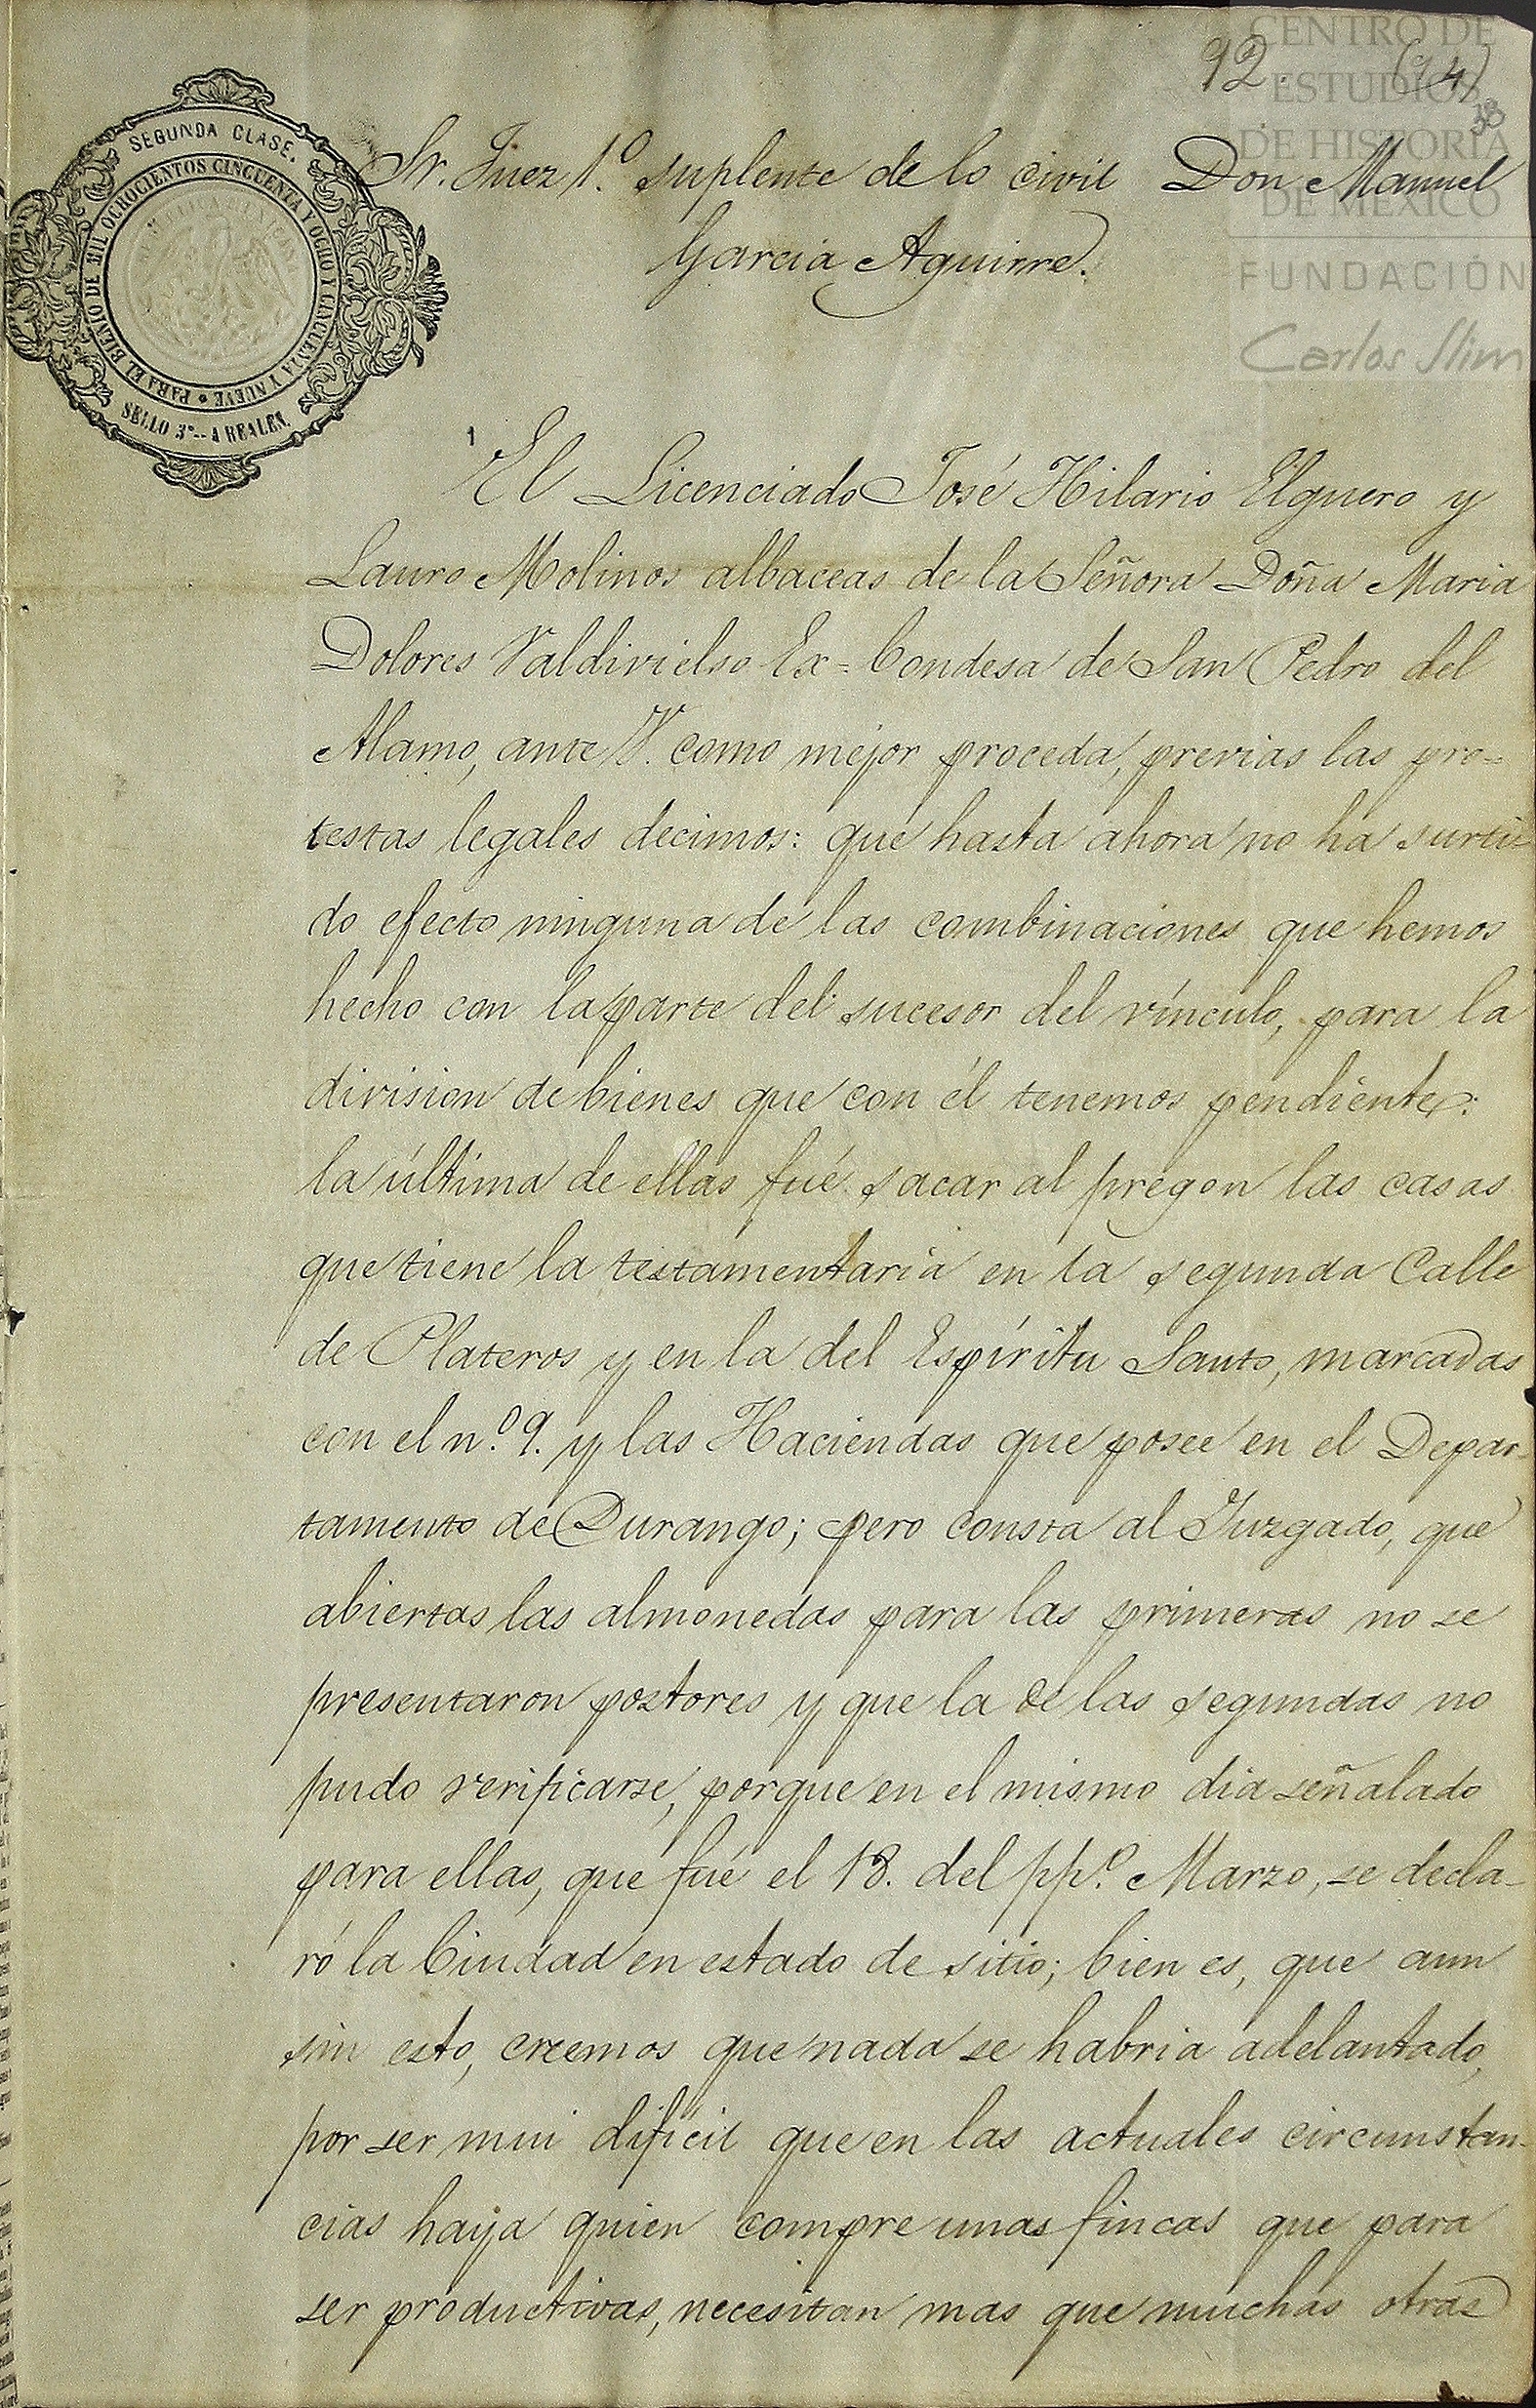 92. (94)
38
CENTRO DE
ESTUDIOS
DE HISTORIA
DE MÉXICO
FUNDACIÓN
Carlos Slim
SEGUNDA CLASE.
PARA EL BIENIO DE MIL OCHOCIENTOS CINCUENTA Y OCHO Y CINCUENTA Y NUEVE
SELLO 3º-- 4 REALES.
Sr. Juez 1.º suplente de lo civil Don Manuel
Garcia Aguirre.
El Licenciado José Hilario Elguero y
Lauro Molinos albaceas de la Señora Doña Maria
Dolores Valdivielso Ex=Condesa de San Pedro del
Alamo, ante V. como mejor proceda, previas las pro=
testas legales decimos: que hasta ahora no ha surti-
do efecto ninguna de las combinaciones que hemos
hecho con la parte del sucesor del vínculo, para la
division de bienes que con él tenemos pendiente:
la última de ellas fué sacar al pregon las casas
que tiene la testamentaria en la segunda Calle
de Plateros y en la del Espíritu Santo, marcadas
con el n.º 9. y las Haciendas que posee en el Depar-
tamento de Durango; pero consta al Juzgado, que
abiertas las almonedas para las primeras no se
presentaron postores y que la de las segundas no
pudo verificarse, porque en el mismo dia señalado
para ellas, que fué el 18. del pp.º Marzo, se decla-
ró la Ciudad en estado de sitio; bien es, que aun
sin esto, creemos que nada se habria adelantado,
por ser mui difícil que en las actuales circunstan-
cias haya quien compre unas fincas que para
ser productivas, necesitan mas que muchas otras